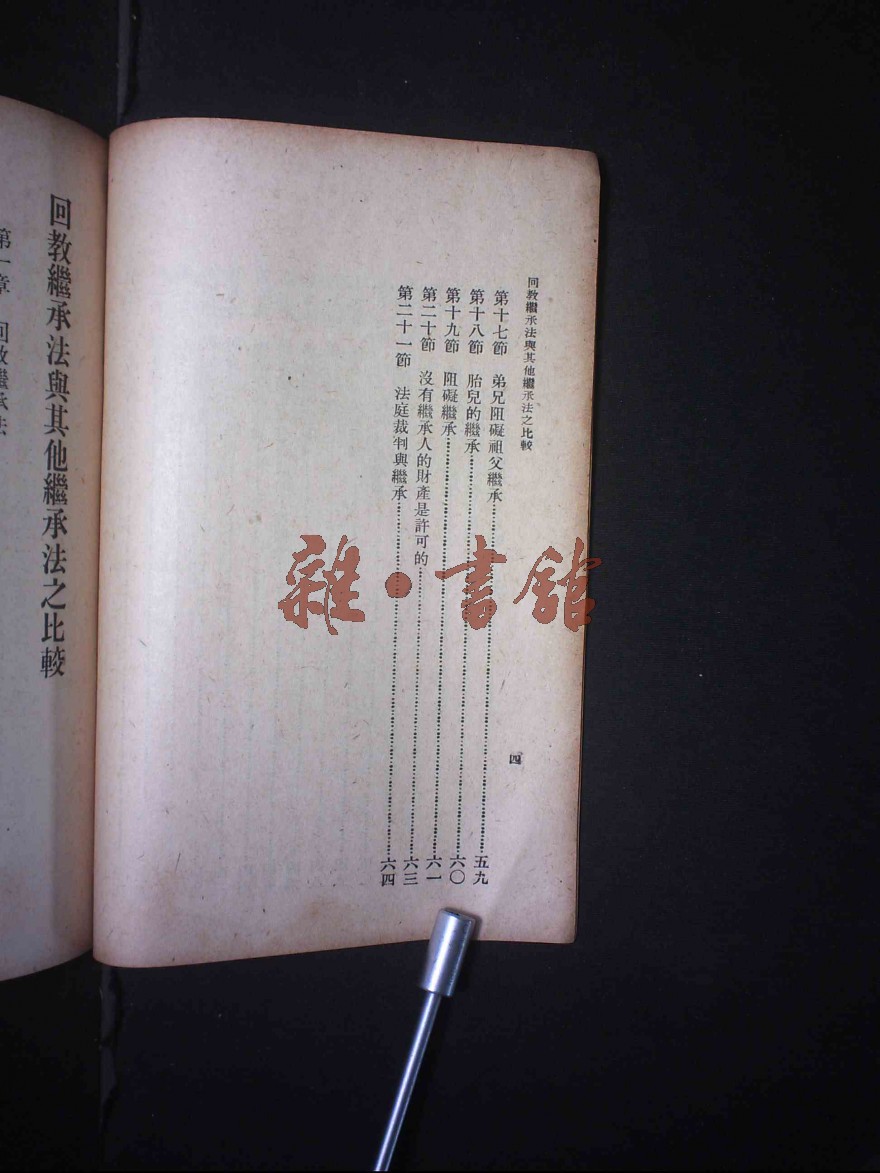 回教繼承法與其他繼承法之比較
第十七節 弟兄阻礙祖父繼承……五九
第十八節 胎兒的繼承……六〇
第十九節 阻礙繼承……六一
第二十節 沒有繼承人的財產是許可的……六三
第二十一節 法庭裁判與繼承……六四
四
回教繼承法與其他繼承法之比較
第一章 回教繼承法
雜·書館